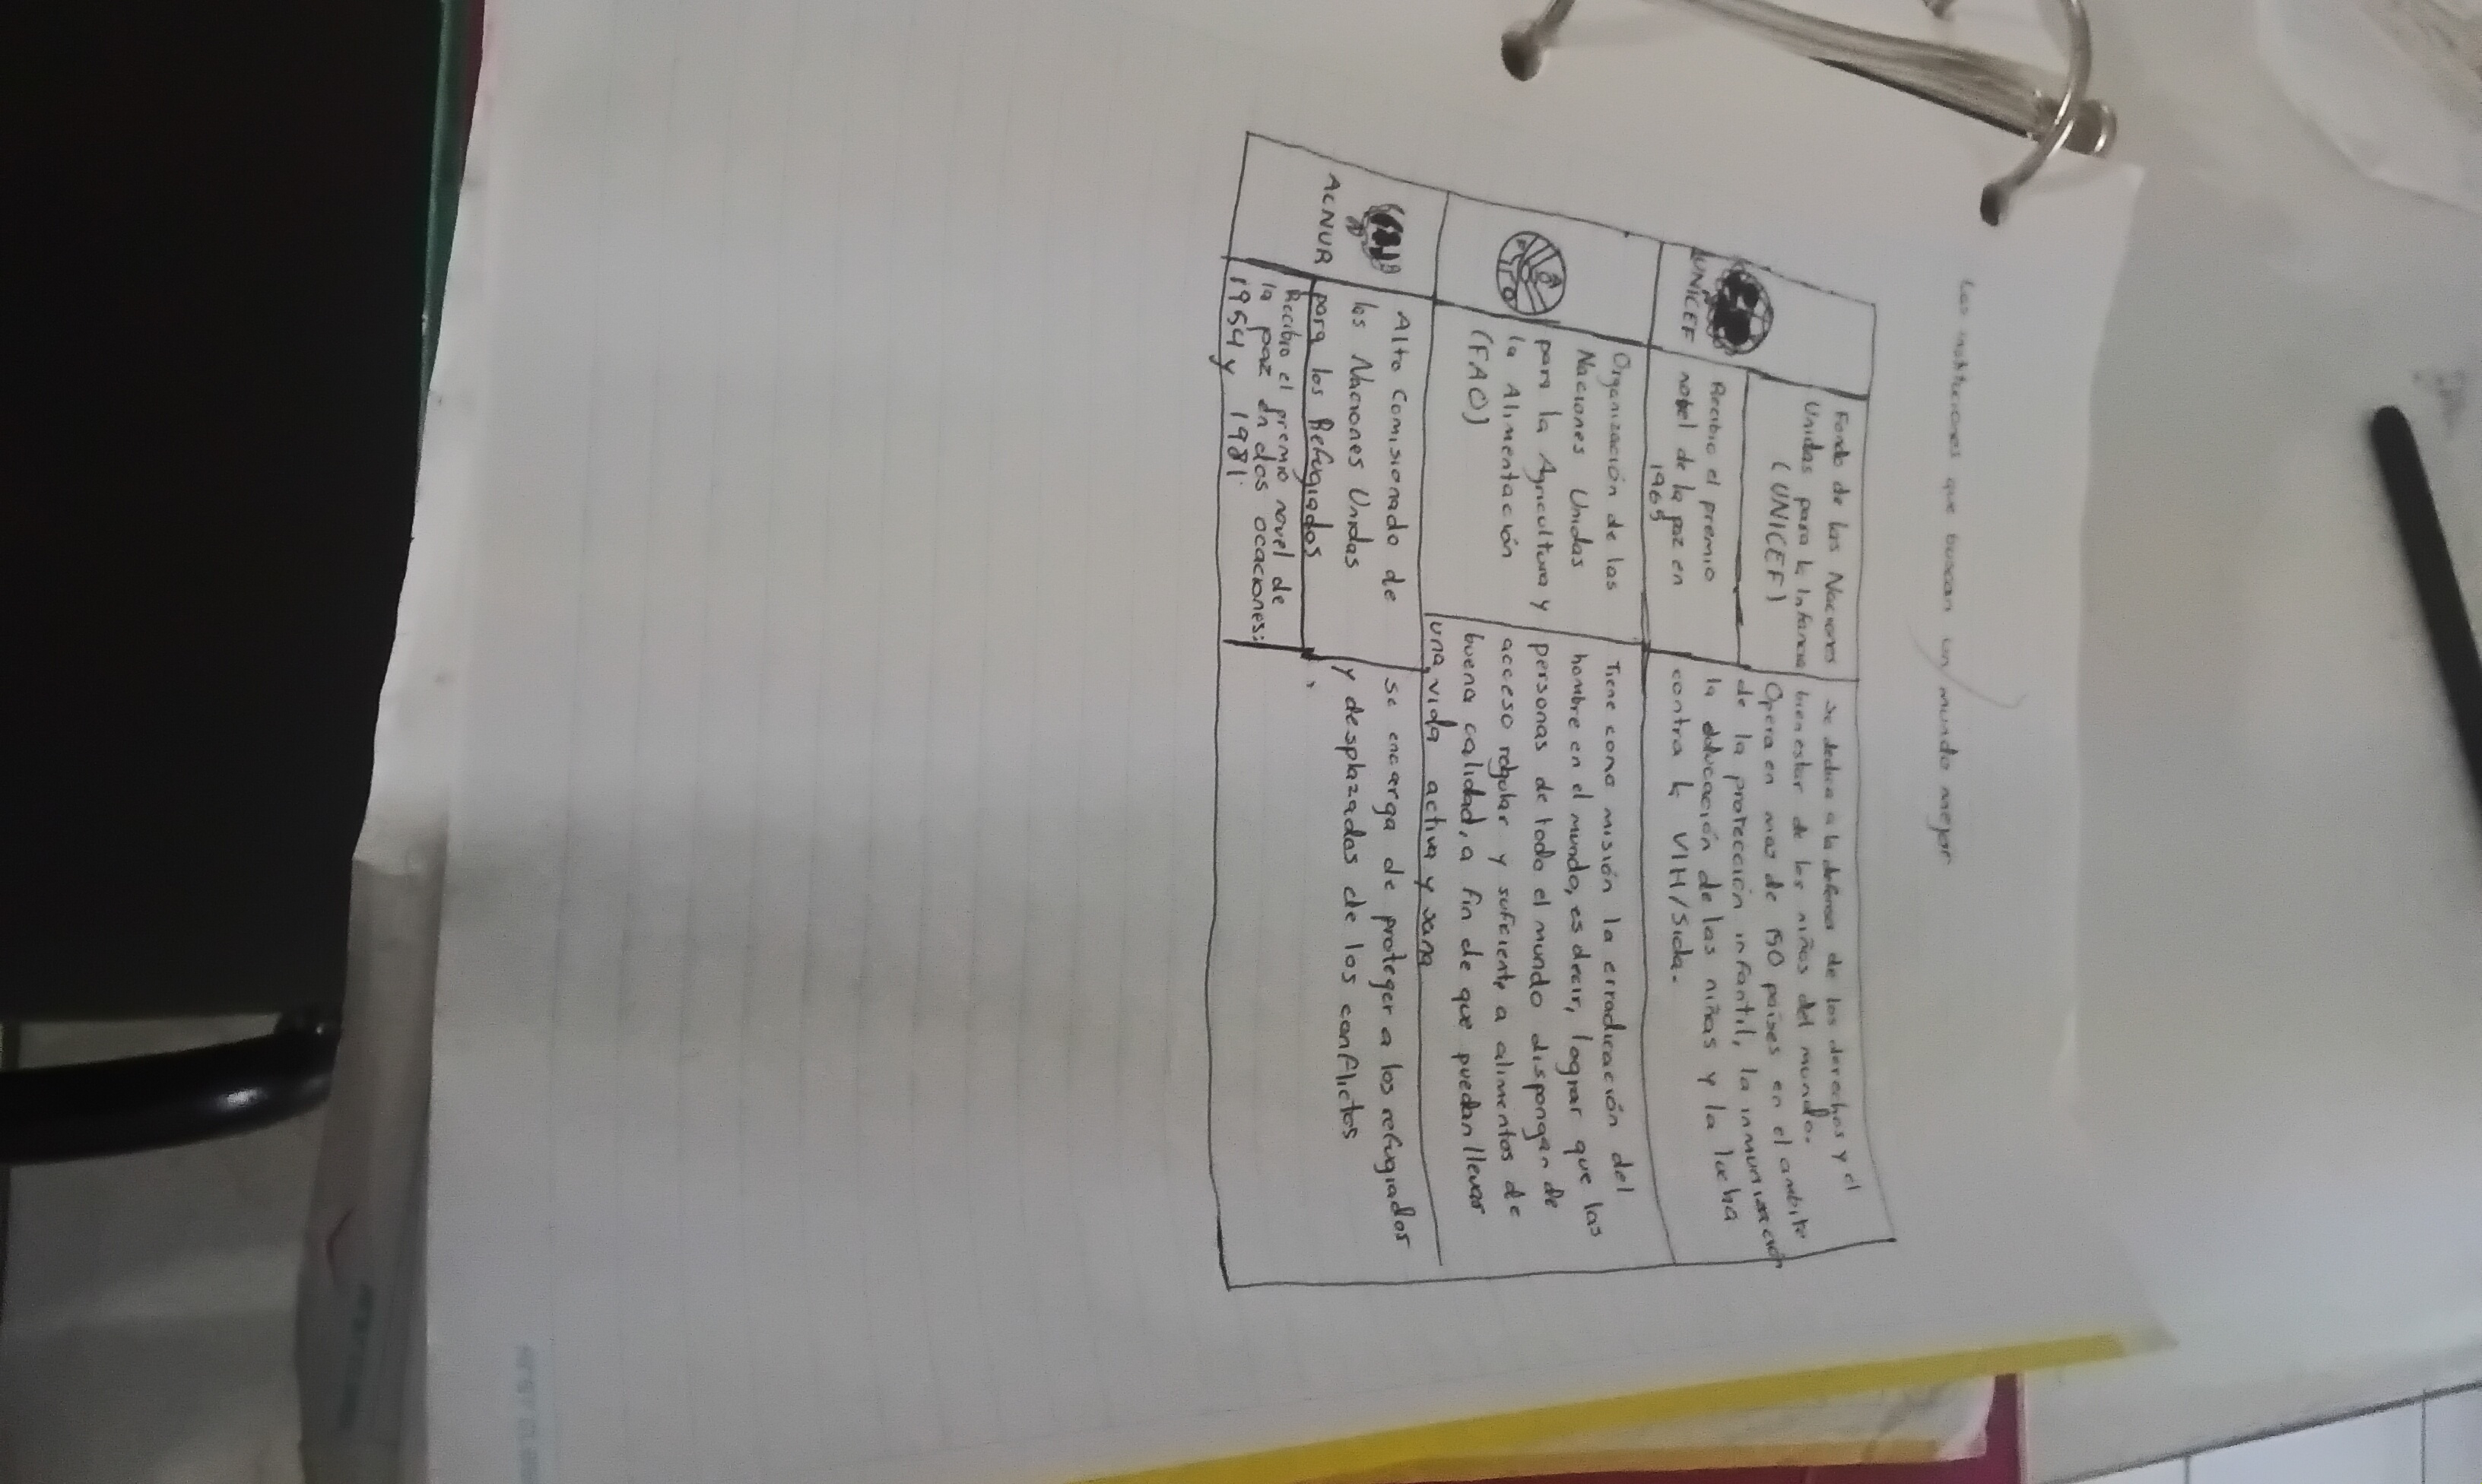 Las instituciones que buscan un mundo mejor
UNICEF
Fondo de las Naciones
Unidas para la Infancia
(UNICEF)
Recibio el premio
nobel de la paz en
1965
Se dedica a la defensa de los derechos y el
bienestar de los niños del mundo.
Opera en mas de 150 países en el ambito
de la protección infantil, la inmunización
la educación de las niñas y la lucha
contra la VIH/Sida.
Organización de las
Naciones Unidas
para la Agricultura y
la Alimentación
(FAO)
Tiene como misión la erradicación del
hambre en el mundo, es decir, lograr que las
personas de todo el mundo dispongan de
acceso regular y suficiente a alimentos de
buena calidad, a fin de que puedan llevar
una vida activa y sana
ACNUR
Alto Comisionado de
las Naciones Unidas
para los Refugiados
Recibio el premio novel de
la paz en dos ocaciones:
1954 y 1981.
se encarga de proteger a los refugiados
y desplazados de los conflictos